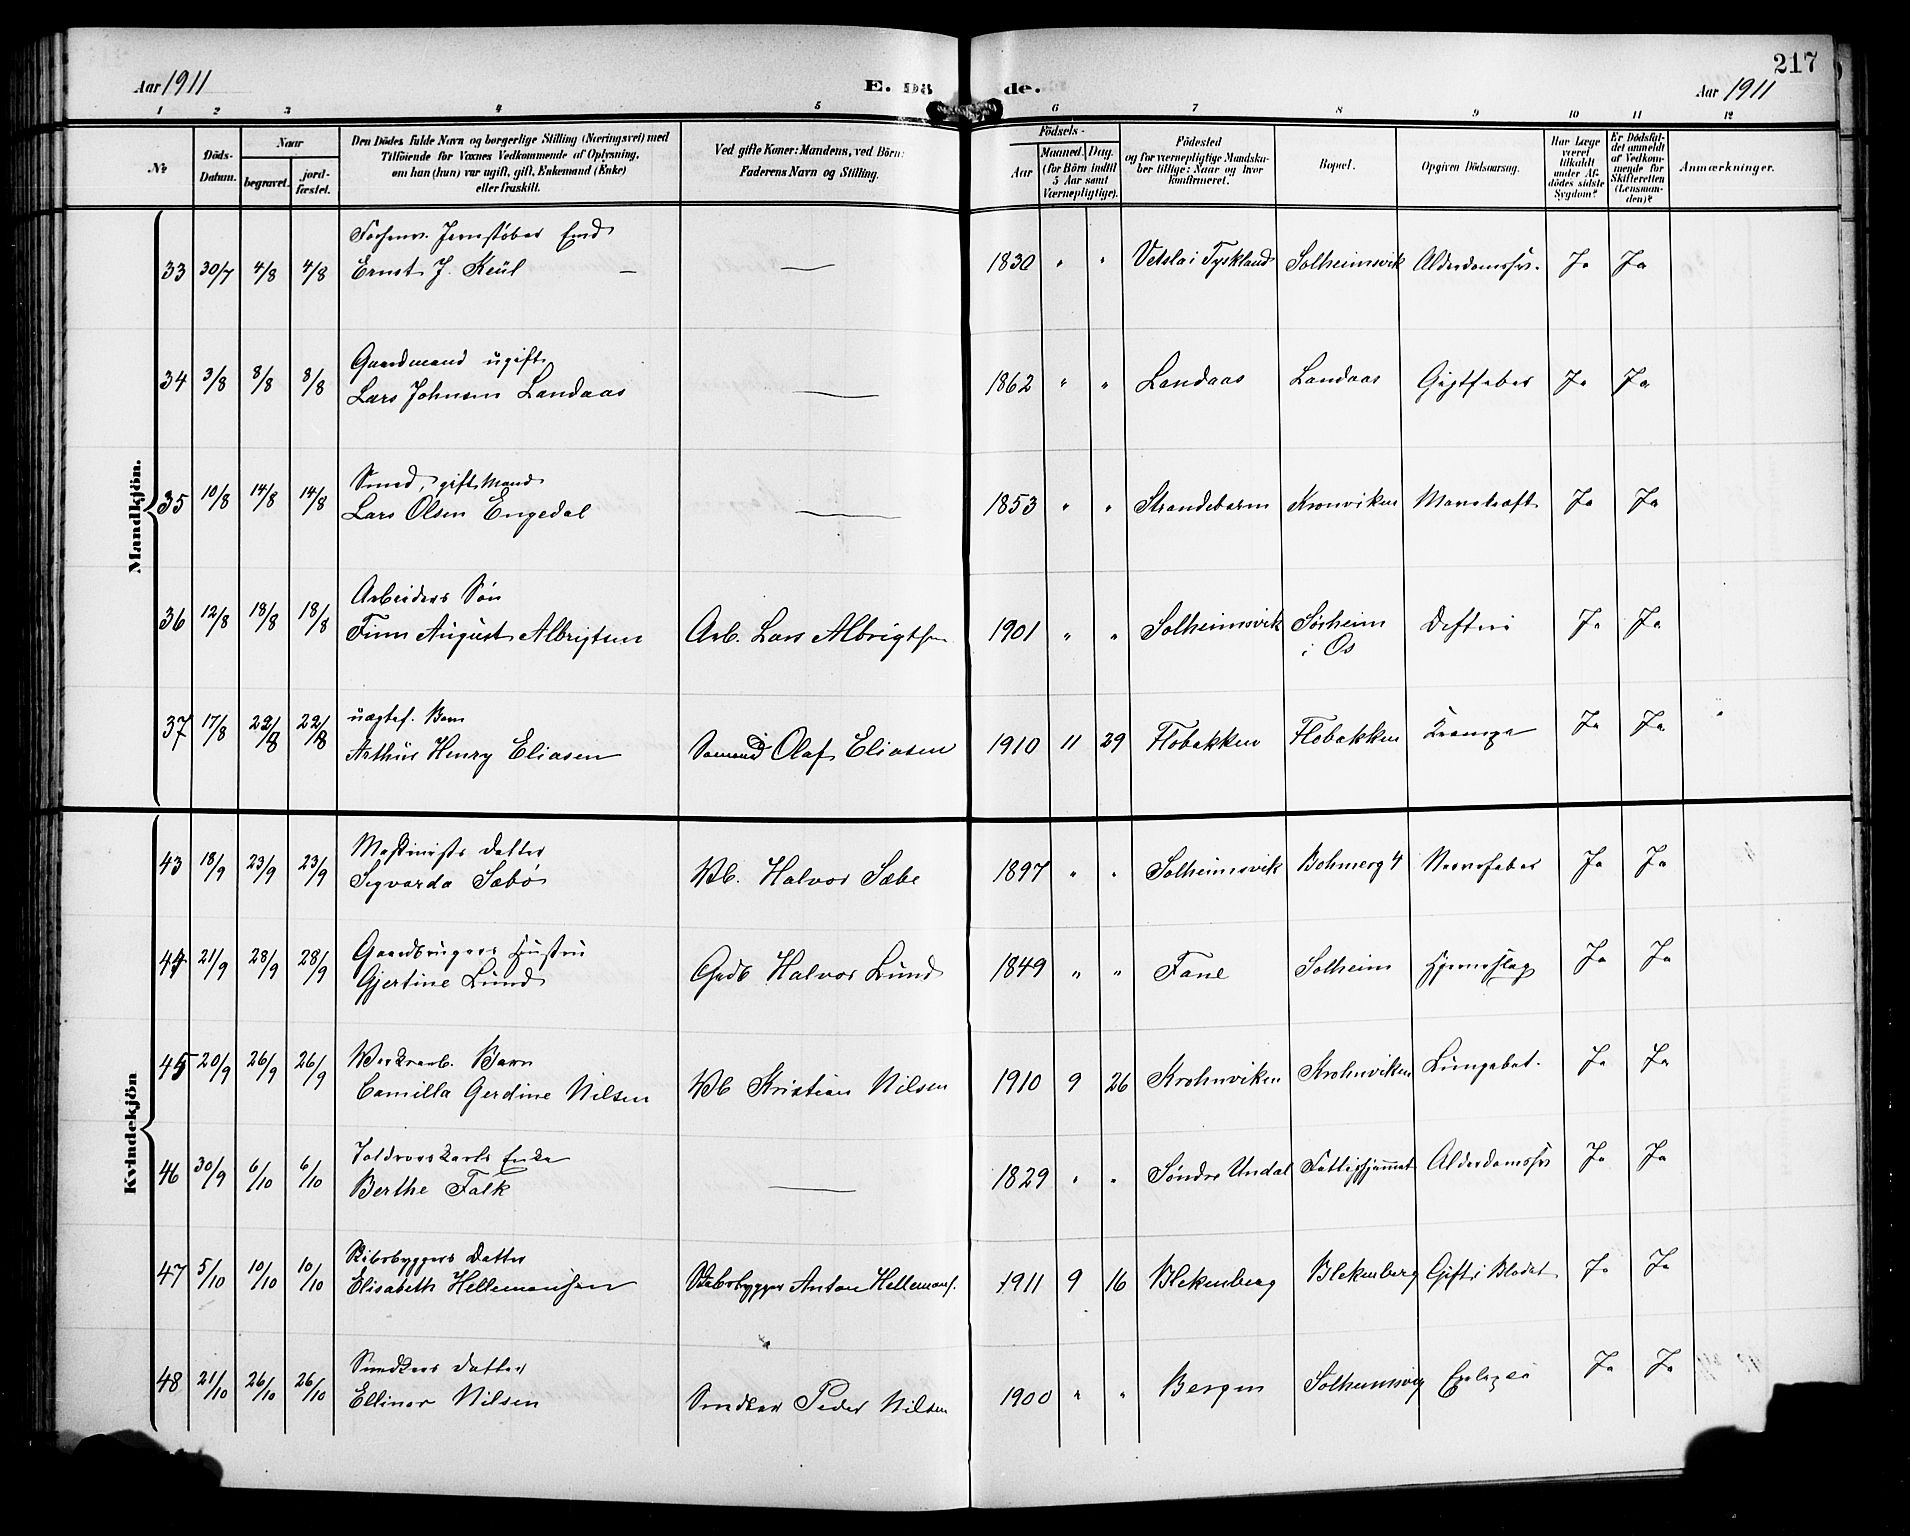 217
Aar 1911
E. Döde.
Aar 1911
1 2 3 4 5 6 7 8 9 10 11 12
No.
Döds-Datum.
Naar
begravet.
jordfæstet.
Den Dödes fulde Navn og borgerlige Stilling (Næringsvei) med
Tilföiende for Voxnes Vedkommende af Oplysning,
om han (hun) var ugift, gift, Enkemand (Enke)
eller fraskilt.
Ved gifte Koner: Mandens, ved Börn:
Faderens Navn og Stilling.
Födsels-
Aar
Maaned. Dag.
(for Börn indtil
5 Aar samt
Værnepligtige).
Födested
og for værnepligtige Mandskaber tillige: Naar og hvor
konfirmeret.
Bopæl.
Opgiven Dödsaarsag.
Har Læge
været
tilkaldt
under Afdödes sidste
Sygdom?
Er Dödsfaldet anmeldt
af Vedkommende for
Skifteretten
(Lensmanden)?
Anmærkninger.
Mandkjön.
33 30/7 4/8 4/8 Jernstøber Ernst J. Keül — 1830 " " i Tyskland Solheimsvik Alderdomssv. Ja Ja
34 3/8 8/8 8/8 Gaardmand ugift Lars Johnsen Landaas — 1862 " " Landaas Landaas Gigtfeber Ja Ja
35 10/8 14/8 14/8 Smed, gift Mand Lars Olsen Engedal — 1853 " " Strandebarm Kronviken Mavekræft Ja Ja
36 12/8 18/8 18/8 Arbeiders Søn Finn August Albrigtsen Arb. Lars Albrigtsen 1901 " " Solheimsvik Sørheim i Os Difteri Ja Ja
37 17/8 22/8 22/8 uægtef. Barn Arthur Henry Eliasen Sømand Olaf Eliasen 1910 11 29 Flobakken Flobakken Krampe Ja Ja
Kvindekjön
43 18/9 23/9 23/9 Maskinists Datter Sigvarda Sæbø Halvor Sæbø 1897 " " Solheimsvik Bohmerg 4 Nervefeber Ja Ja
44 21/9 28/9 28/9 Gaardbrugers Hustru Gjertine Lund Grdb Halvor Lund 1849 " " Fane Solheim Hjerneslag Ja Ja
45 20/9 26/9 26/9 Værksarb. Barn Camilla Gerdine Nilsen Vb Kristian Nilsen 1910 9 26 Krohnviken Krohnviken Lungebet. Ja Ja
46 30/9 6/10 6/10 Toldroerskarls Enke Berthe Falk — 1829 " " Søndre Undal Fattighjemmet Alderdomssv Ja Ja
47 5/10 10/10 10/10 Skibsbyggers Datter Elisabeth Hellemansen Skibsbygger Anton Hellemans. 1911 9 16 Blekenberg Blekenberg Gift i Blodet Ja Ja
48 21/10 26/10 26/10 Snedkers Datter Ellinor Nilsen Snedker Peder Nilsen 1900 " " Bergen Solheimsvig Ja Ja